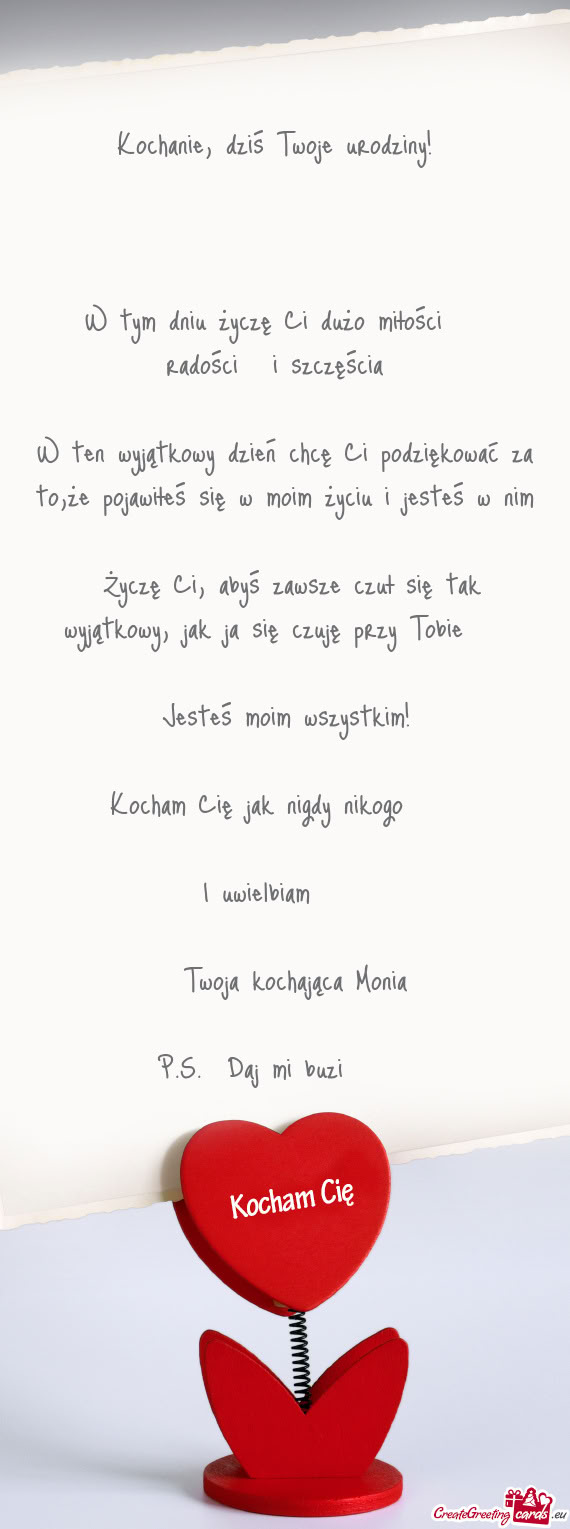 Kochanie, dziś Twoje urodziny!
W tym dniu życzę Ci dużo miłości
radości i szczęścia
W ten wyjątkowy dzień chcę Ci podziękować za
to,że pojawiłeś się w moim życiu i jesteś w nim
Życzę Ci, abyś zawsze czuł się tak
wyjątkowy, jak ja się czuję przy Tobie
Jesteś moim wszystkim!
Kocham Cię jak nigdy nikogo
I uwielbiam
Twoja kochająca Monia
P.S. Daj mi buzi
Kocham Cię
CreateGreeting cards .eu